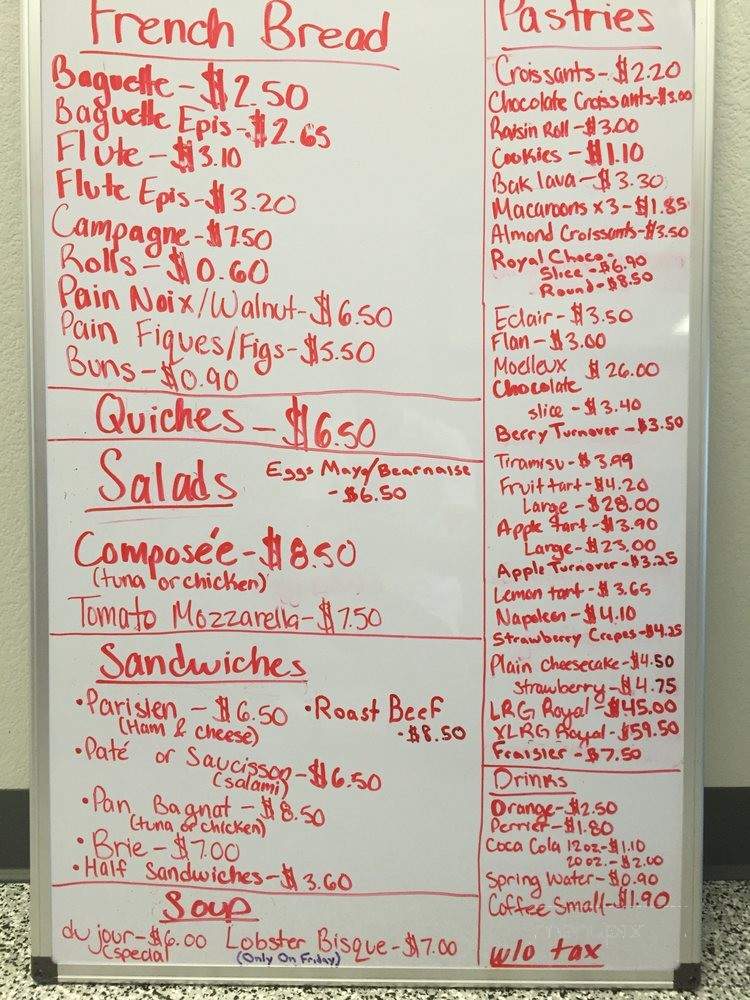 French Bread
Baguette - $2.50
Baguette Epis - $2.65
Flute - $3.10
Flute Epis - $3.20
Campagne - $7.50
Rolls - $0.60
Pain Noix/Walnut - $6.50
Pain Fiques/Figs - $5.50
Buns - $0.90
Quiches - $6.50
Salads
Eggs Mayo/Bearnaise
- $6.50
Composée - $8.50
(tuna or chicken)
Tomato Mozzarella - $7.50
Sandwiches
• Parisien - $6.50
(Ham & cheese)
• Roast Beef
- $8.50
• Paté or Saucisson - $6.50
(salami)
• Pan Bagnat - $8.50
(tuna or chicken)
• Brie - $7.00
• Half Sandwiches - $3.60
Soup
du jour - $6.00
(special
Lobster Bisque - $7.00
(Only On Friday)
Pastries
Croissants - $2.20
Chocolate Croissants - $3.00
Raisin Roll - $3.00
Cookies - $1.10
Baklava - $3.30
Macaroons x3 - $1.85
Almond Croissants - $3.50
Royal Choco -
Slice - $6.90
Round - $8.50
Eclair - $3.50
Flan - $3.00
Moelleux $26.00
Chocolate
slice - $3.40
Berry Turnover - $3.50
Tiramisu - $3.99
Fruit tart - $4.20
Large - $28.00
Apple tart - $3.90
Large - $23.00
Apple Turnover - $3.25
Lemon tart - $3.65
Napoleon - $4.10
Strawberry Crepes - $4.25
Plain Cheesecake - $4.50
Strawberry - $4.75
LRG Royal - $45.00
XLRG Royal - $59.50
Fraisier - $7.50
Drinks
Orange - $2.50
Perrier - $1.80
Coca Cola 12oz. - $1.10
20oz. - $2.00
Spring Water - $0.90
Coffee Small - $1.90
menupix
w/o tax